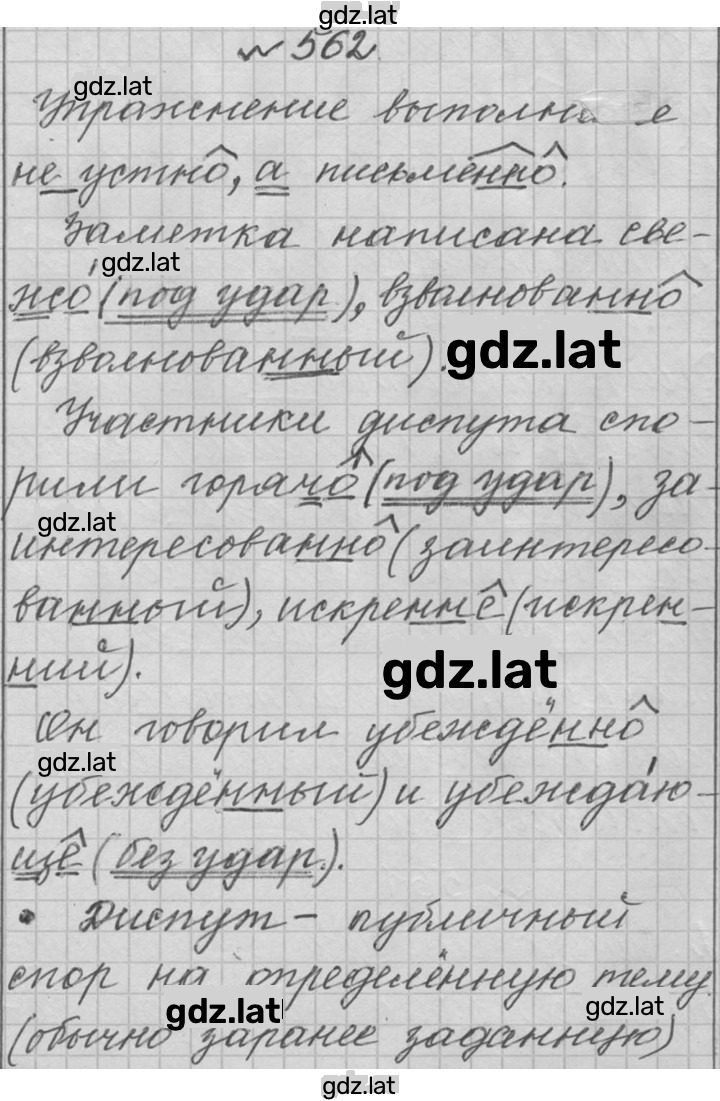 gdz.lat
№ 562.
gdz.lat
Упражнение выполните
не устно, а письменно.
Заметка написана све-
gdz.lat
жо (под удар.), взволнованно
(взволнованный). gdz.lat
Участники диспута спо-
рили горячо (под удар), за-
gdz.lat
интересованно (заинтересо-
ванный), искренне (искрен-
ний). gdz.lat
Он говорил убеждённо
gdz.lat
(убеждённый) и убеждаю-
ще (без удар.).
• Диспут – публичный
спор на определённую тему
gdz.lat gdz.lat
(обычно заранее заданную)
gdz.lat